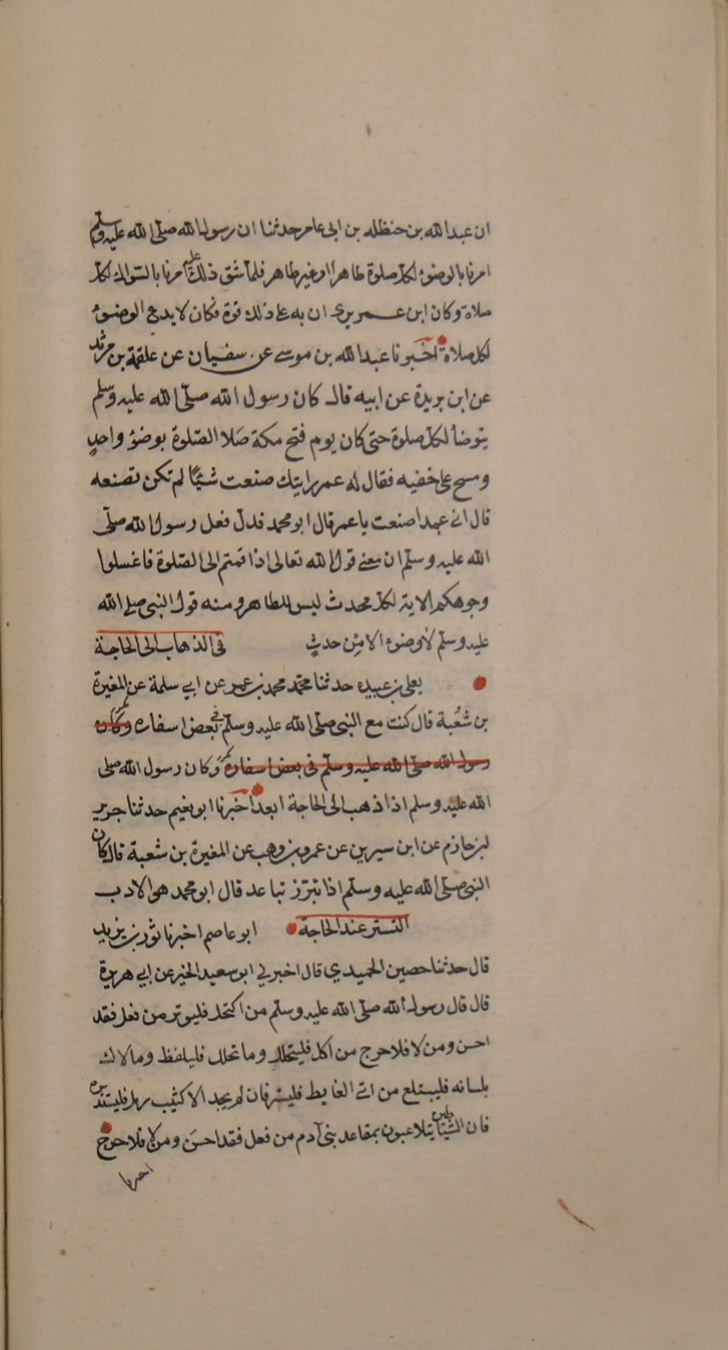 ان عبدالله بن حنظله بن ابى عامر حدثنا ان رسول الله صلى الله عليه وسلم
امرنا بالوضوء لكل صلوة طاهرا او غير طاهر فلما شق ذلك عليه امرنا بالسواك لكل
صلاة وكان ابن عمر يرى ان به على ذلك قوة فكان لا يدع الوضوء
لكل صلاة اخبرنا عبدالله بن موسى عن سفيان عن علقمة بن مرثد
عن ابن بريدة عن ابيه قال كان رسول الله صلى الله عليه وسلم
يتوضأ لكل صلوة حتى كان يوم فتح مكة صلا الصلوة بوضؤ واحدٍ
ومسح على خفيه فقال له عمر رايتك صنعت شيئًا لم تكن تصنعه
قال انى عمدا صنعت يا عمر قال ابو محمد فدل فعل رسول الله صلى
الله عليه وسلم ان معنى قول الله تعالى اذا قمتم الى الصلوة فاغسلوا
وجوهكم الاية لكل محدث ليس للطاهر ومنه قول النبى صلى الله
عليه وسلم لا وضوء الا مِن حدثٍ في الذهاب الى الحاجة
يعلى بن عبيده حدثنا محمد محمد بن عمر عن ابي سلمة عن المغيرة
بن شُعبة قال كنت مع النبى صلى الله عليه وسلم في بعض اسفاره وكان
رسول الله صلى الله عليه وسلم فى بعض اسفاره وكان رسول الله صلى
الله عليه وسلم اذا ذهب الى الحاجة ابعد اخبرنا ابو نعيم حدثنا جرير
بن حازم عن ابن سيرين عن عمرو بن وهب عن المغيرة بن شعبة قال كان
النبى صلى الله عليه وسلم اذا تبرّز تباعد قال ابو محمد هو الادب
التستر عند الحاجة ابو عاصم اخبرنا ثور بن يزيد
قال حدثنا حصين الحميدي قال اخبرني ابو سعيد الخير عن ابي هريرة
قال قال رسول الله صلى الله عليه وسلم من اكتحل فليوتر من فعل فقد
احسن ومن لا فلا حرج من اكل فليتخلل وما تخلل فليلفظ وما لاك
بلسانه فليبتلع من اتى الغايط فليستتر فان لم يجد الا كثيب رمل فليستدبره
فان الشياطين يتلاعبون بمقاعد بنى آدم من فعل فقد احسَن ومن لا فلا حرج
اخبرنا